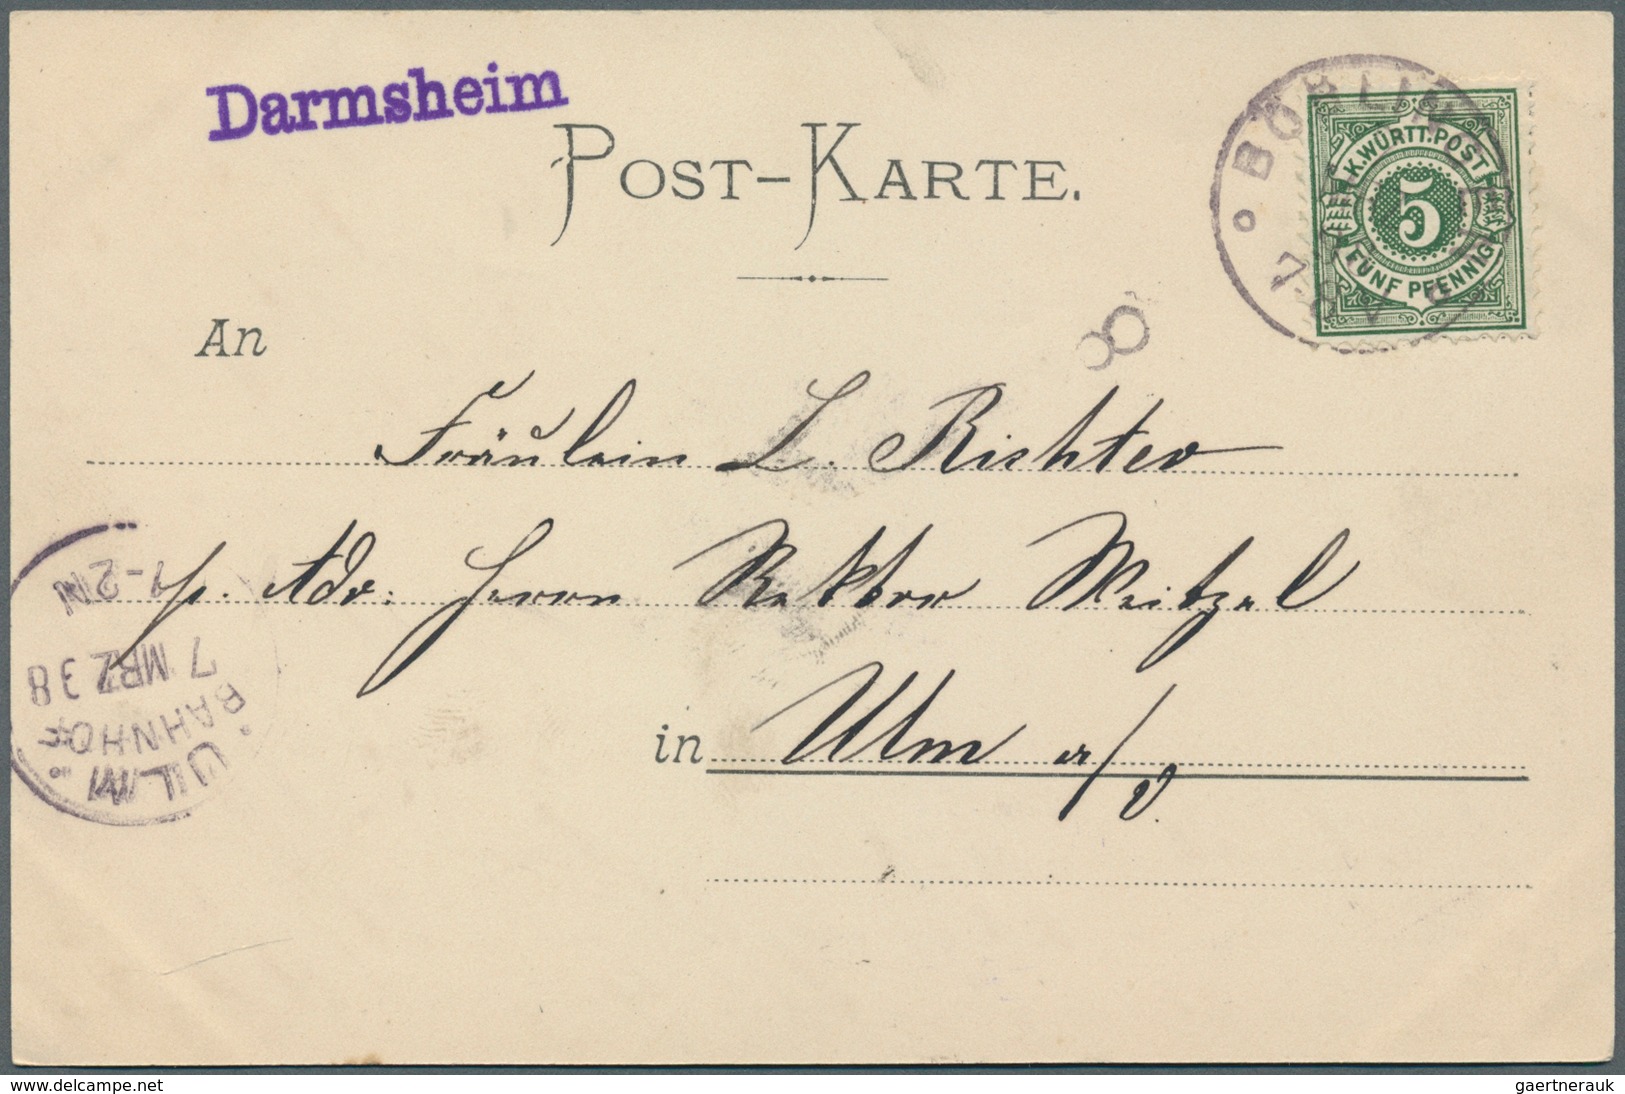 Darmsheim
POST-KARTE.
BÖBLINGEN
K. WÜRTT. POST
5
FÜNF PFENNIG
An
Fräulein L. Richter
p. Adr. Herrn Rektor Weitzel
in Ulm a/D.
1-2N
7 MRZ 38
BAHNHOF
ULM
www.delcampe.net
gaertnerauk